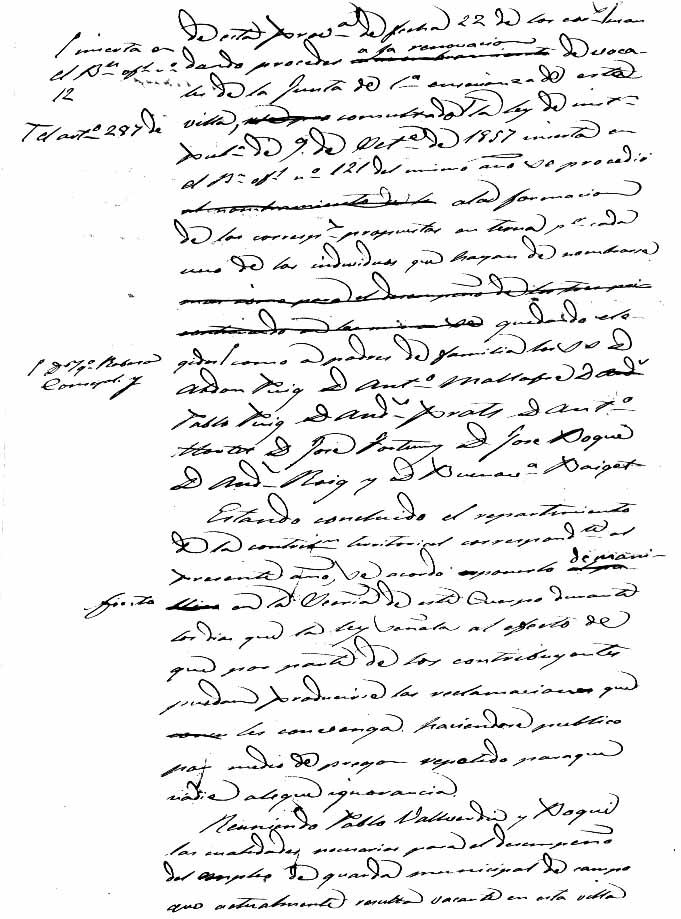 de esta Prov.a de fecha 22 de los corr.
Inserta en
el B.n of.l n.o
12
dando proceder a la renovacion nombramiento de voca-
les de la Junta de 1.a enseñanza de esta
villa, consultado la ley de inst.n
Y el art.o 287 de
pub.ca de 9 de Set.e de 1857 inserta en
el B.n of.l n.o 121 del mismo año se procedió
al nombramiento de la a la formacion
de las corresp.tes propuestas en terna p.a cada
uno de los individuos que hayan de nombrarse
para el desempeño de
quedando ele-
Concejal y
gidos como a padres de familia los SS D
Abdon Puig D Ant.o Mallafre D And.u
Pablo Puig D And.u Prats D Ant.o
D Jose Fortuny D Jose Roque
D And.u Roig y a D Buenav.a Puiget
Estando concluido el repartimiento
de la contrib.n territorial correspond.te al
presente año, se acordó esponerlo de mani-
fiesto
en la Secret.a de este Cuerpo durante
los dias que la ley señala al efecto de
que por parte de los contribuyentes
puedan producirse las reclamaciones que
les convenga haciendose publico
por medio de pregon repetido para que
nadie alegue ignorancia.
Reuniendo Pablo Vallverdu y Roque
las cualidades necesarias para el desempeño
del empleo de guarda municipal de campo
que actualmente resulta vacante en esta villa